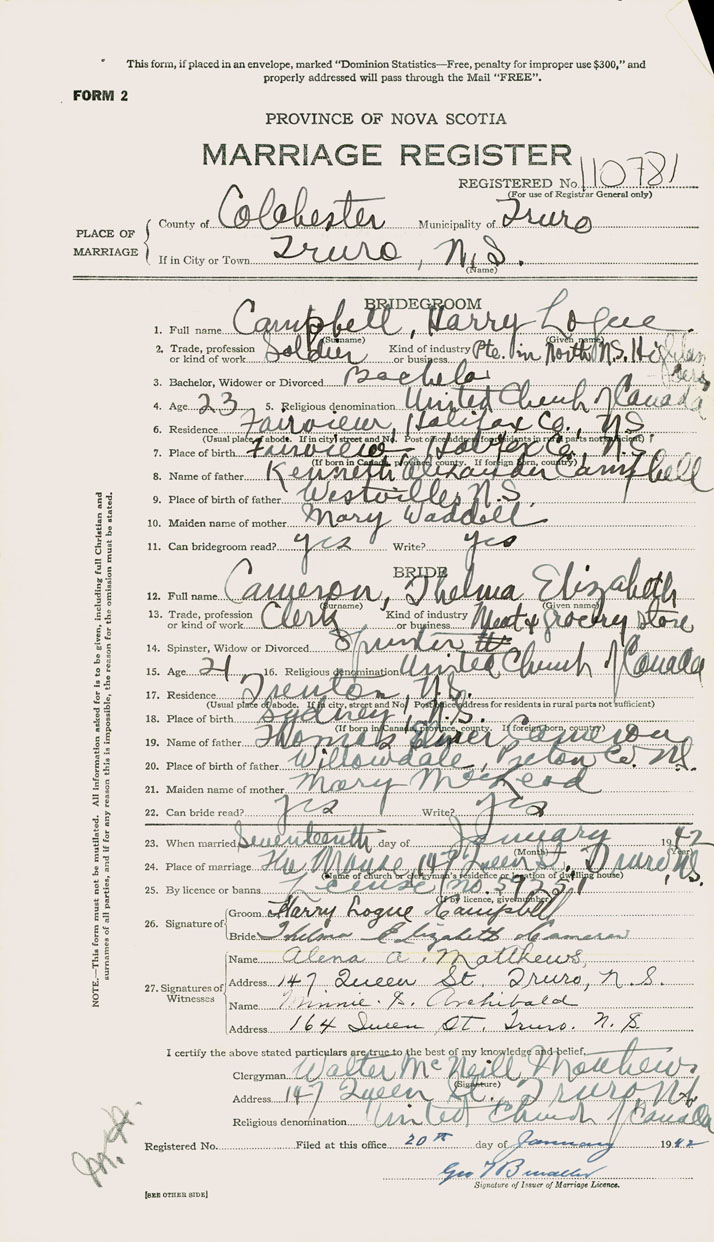 This form, if placed in an envelope, marked "Dominion Statistics—Free, penalty for improper use $300," and
properly addressed will pass through the Mail "FREE".
FORM 2
PROVINCE OF NOVA SCOTIA
MARRIAGE REGISTER
REGISTERED No. 110781
(For use of Registrar General only)
PLACE OF MARRIAGE
County of Colchester Municipality of Truro
If in City or Town Truro, N.S.
(Name)
BRIDEGROOM
1. Full name Campbell, Harry Logue
(Surname) (Given name)
2. Trade, profession or kind of work Soldier Kind of industry or business Pte. in North N.S. Highlanders
3. Bachelor, Widower or Divorced Bachelor
4. Age 23 5. Religious denomination United Church of Canada
6. Residence Fairview, Halifax Co., N.S.
(Usual place of abode. If in city, street and No. Post office address for residents in rural parts not sufficient)
7. Place of birth Fairview, Halifax Co., N.S.
(If born in Canada, province, county. If foreign born, country)
8. Name of father Kenneth Alexander Campbell
9. Place of birth of father Westville, N.S.
10. Maiden name of mother Mary Waddell
11. Can bridegroom read? yes Write? yes
BRIDE
12. Full name Cameron, Thelma Elizabeth
(Surname) (Given name)
13. Trade, profession or kind of work Clerk Kind of industry or business Meat & grocery store
14. Spinster, Widow or Divorced Spinster
15. Age 21 16. Religious denomination United Church of Canada
17. Residence Trenton, N.S.
(Usual place of abode. If in city, street and No. Post office address for residents in rural parts not sufficient)
18. Place of birth Sydney, N.S.
(If born in Canada, province, county. If foreign born, country)
19. Name of father Thomas Cameron
20. Place of birth of father Willowdale, Pictou Co. N.S.
21. Maiden name of mother Mary MacLeod
22. Can bride read? yes Write? yes
23. When married Seventeenth day of January 1942
(Month) (Year)
24. Place of marriage The Manse, 147 Queen St. Truro, N.S.
(Name of church or clergyman's residence or location of dwelling house)
25. By licence or banns License no.
(If by licence, give number)
26. Signature of
Groom Harry Logue Campbell
Bride Thelma Elizabeth Cameron
27. Signatures of Witnesses
Name Alena A. Matthews
Address 147 Queen St. Truro, N.S.
Name Minnie G. Archibald
Address 164 Queen St. Truro. N.S.
I certify the above stated particulars are true to the best of my knowledge and belief,
Clergyman Walter McNeill Matthews
(Signature)
Address 147 Queen St. Truro N.S.
Religious denomination United Church of Canada
Registered No. Filed at this office 20th day of January 1942
Signature of Issuer of Marriage Licence.
[SEE OTHER SIDE]
NOTE.—This form must not be mutilated. All information asked for is to be given, including full Christian and
surnames of all parties, and if for any reason this is impossible, the reason for the omission must be stated.